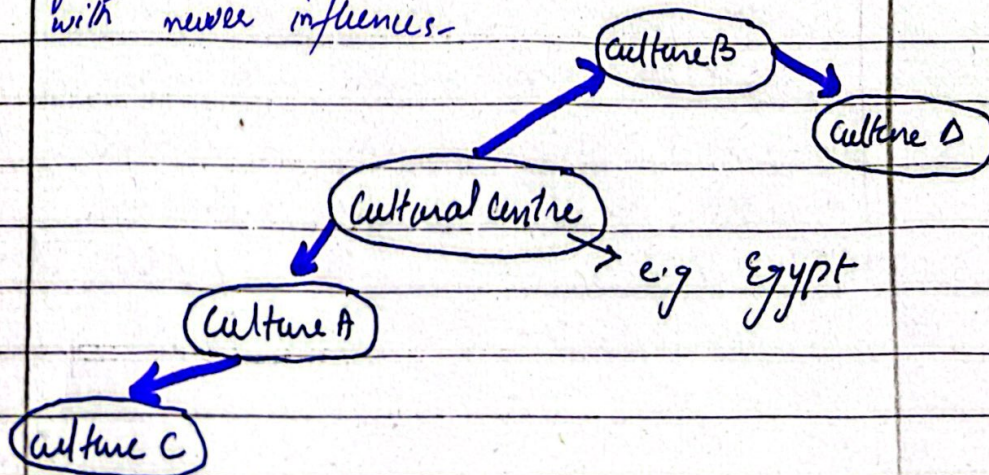 with newer influences-
Culture B
Culture D
Cultural Centre
e.g Egypt
Culture A
Culture C